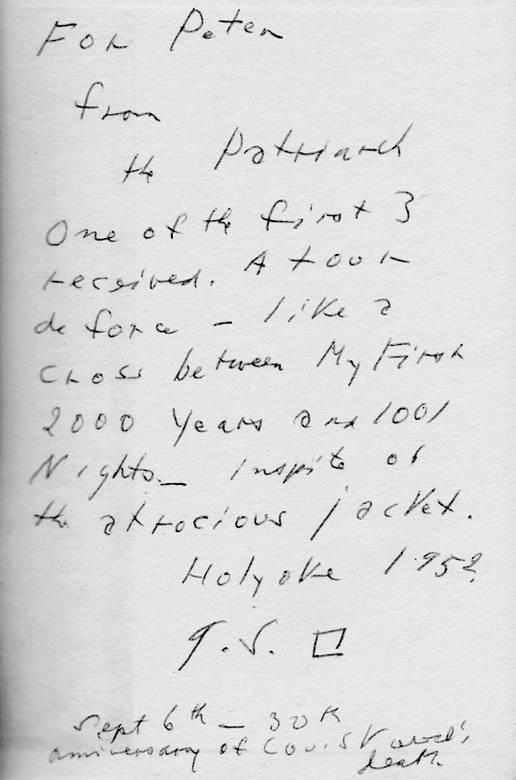 For Peter
from
the Patriarch
One of the first 3
received. A tour
de force – like a
cross between My First
2000 Years and 1001
Nights – Inspite of
the atrocious jacket.
Holyoke 1952
G.S. □
Sept 6th – 30th
anniversary of Cou. St
death.